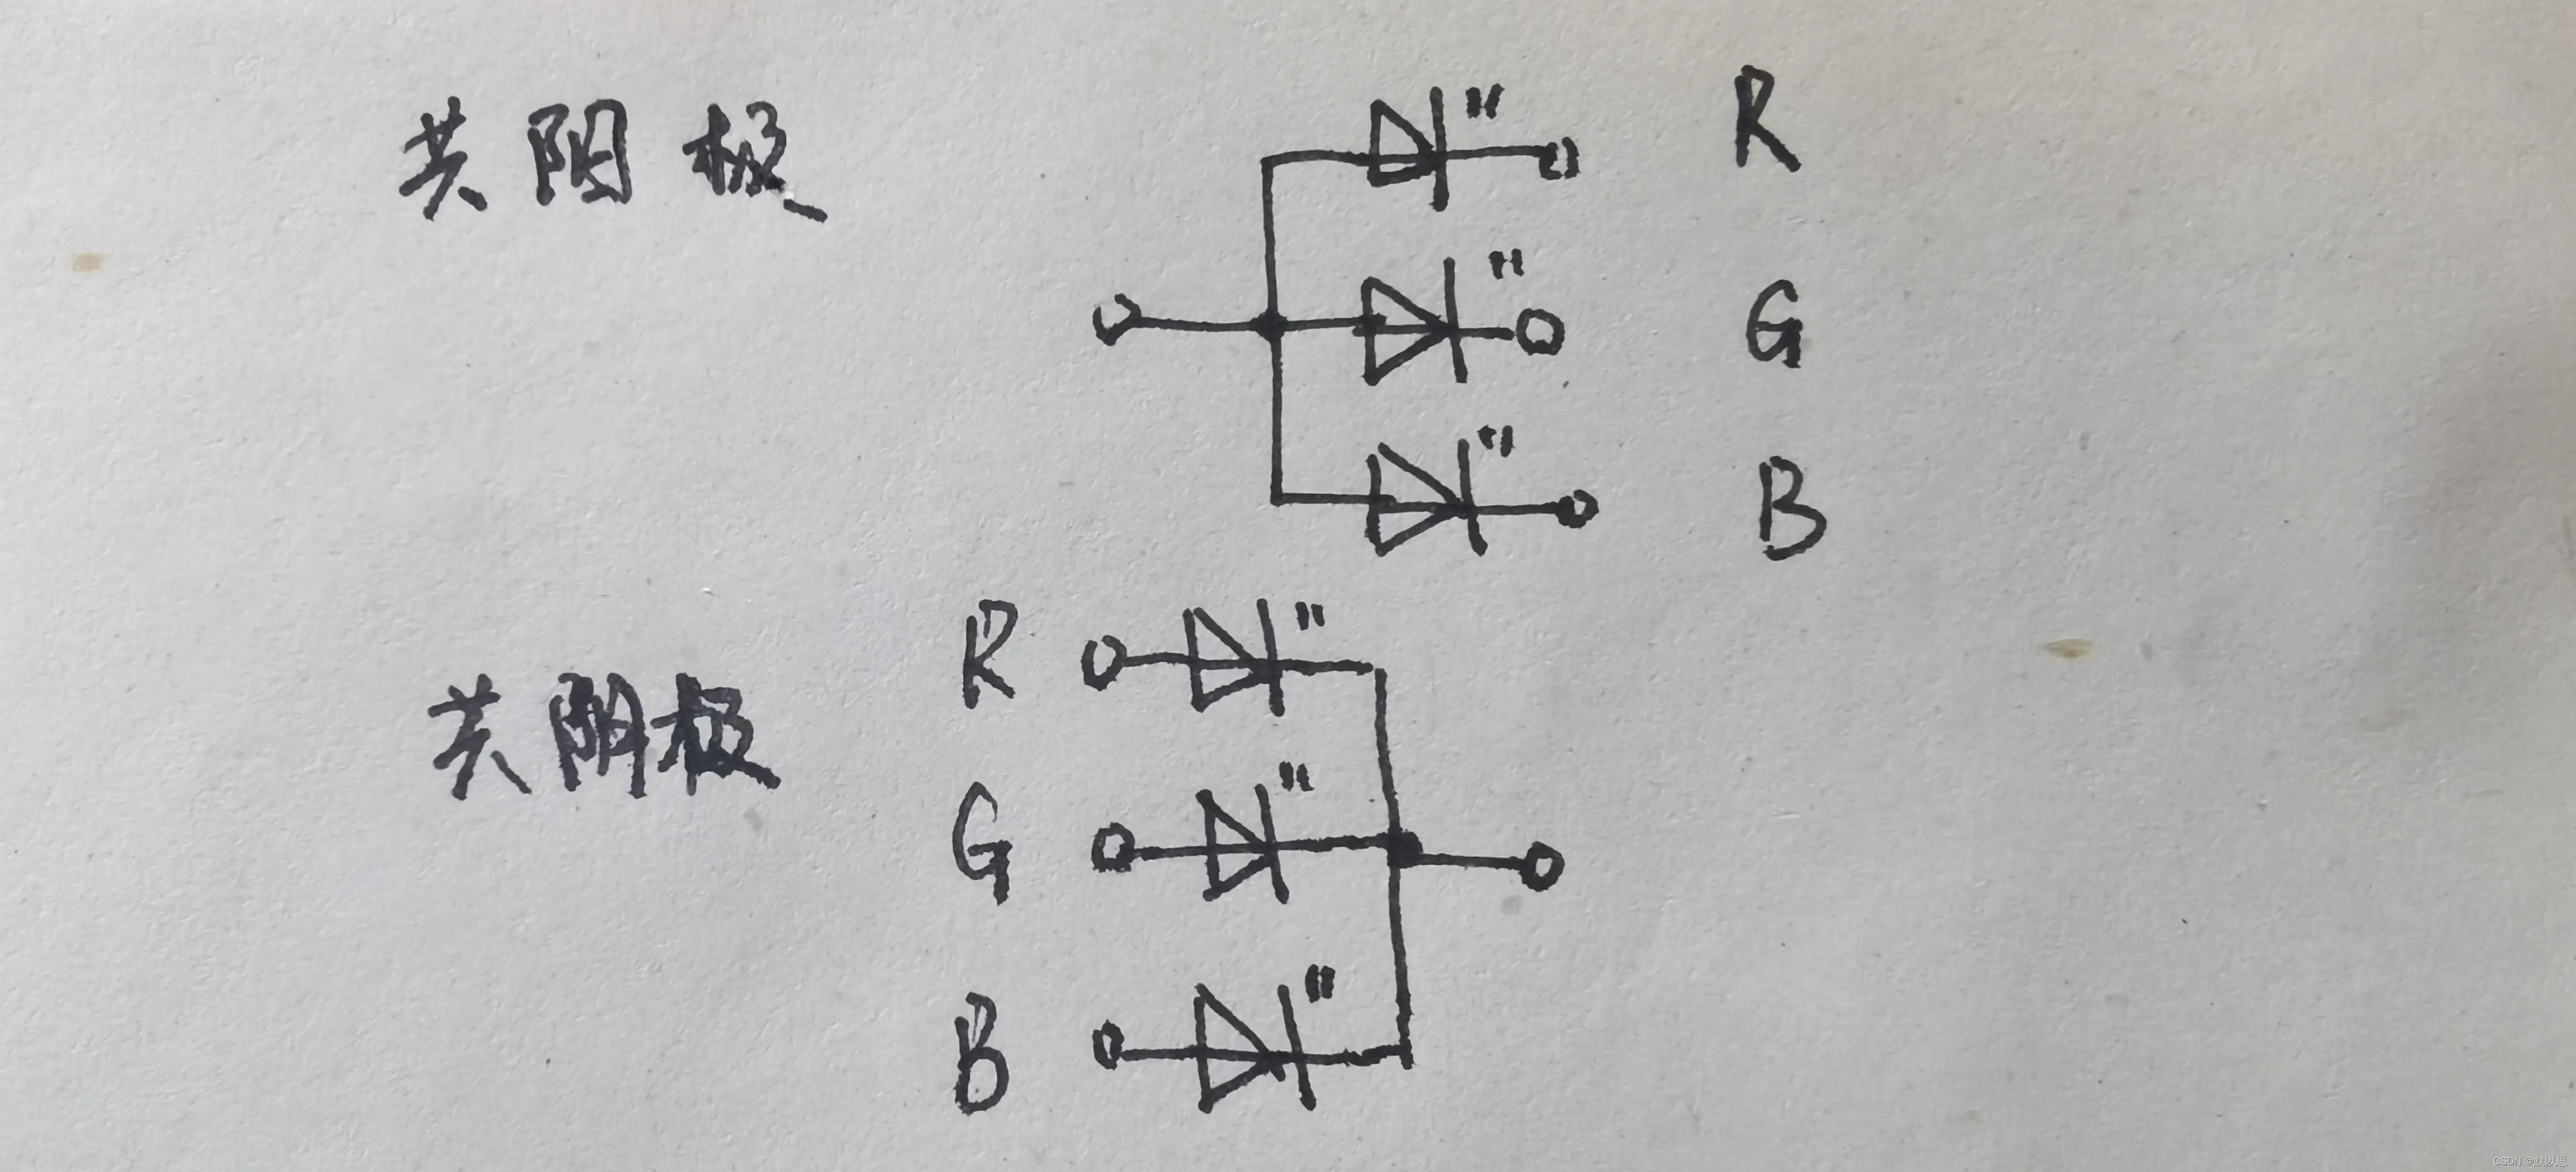 共阳极
R
G
B
共阴极
R
G
B
CSDN